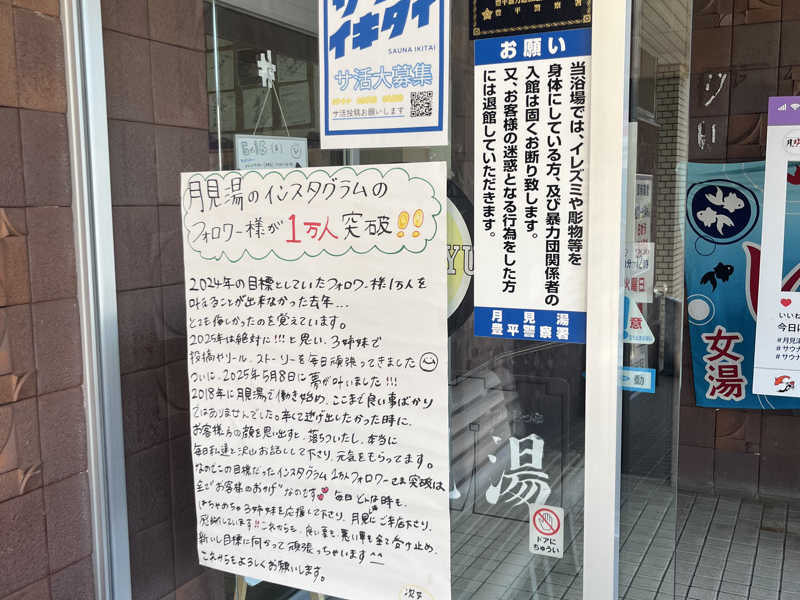 サ
イキタイ
SAUNA IKITAI
サ活大募集
サ活投稿お願いします
豊平警察署
お願い
当浴場では、イレズミや彫物等を
身体にしている方、及び暴力団関係者の
入館は固くお断り致します。
又、お客様の迷惑となる行為をした方
には退館していただきます。
月見湯
豊平警察署
月見湯のインスタグラムの
フォロワー様が1万人突破!!
2024年の目標としていたフォロワー様1万人を
叶えることが出来なかった去年...
とても悔しかったのを覚えています。
2025年は絶対に!!!と思い、3姉妹で
投稿やリール、ストーリーを毎日頑張ってきました
ついに、2025年5月8日に夢が叶いました!!!
2018年に月見湯で働き始め、ここまで良い事ばかり
ではありませんでした。辛くて逃げ出したかった時に、
お客様方の顔を思い出すと、落ちついたし、本当に
毎日私達と沢山お話して下さり、元気をもらってます。
なのでこの目標だったインスタグラム1万人フォロワーさま突破は
全て"お客様のおかげ"なのです 毎日どんな時も、
はちゃめちゃ3姉妹を応援して下さり、月見湯にご来店下さり、
感謝しています!!これからも、良い事も悪い事も全て受け止め、
新しい目標に向かって頑張っちゃいます^^
これからもよろしくお願いします。
次女
湯
ドアに
ちゅうい
火曜日
意
動
女湯
いいね
今日
#月見湯
#サウナ
#サ